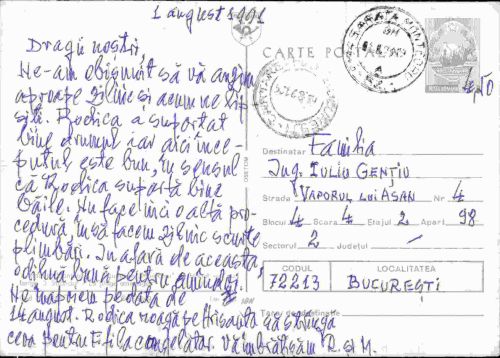 1 august 1991
Dragii noștri,
Ne-am obișnuit să vă avem
aproape zilnic și acum ne lip-
siți. Rodica a suportat
bine drumul iar aici înce-
putul este bun, în sensul
că Rodica suportă bine
băile. Nu face nici o altă pro-
cedură, însă facem zilnic scurte
plimbări. În afară de aceasta
odihnă bună pentru amândoi.
Ne înapoiem pe data de
14 august. Rodica roagă pe Hrisanta să strângă
ceva pentru Fifi la congelator. Vă îmbrățișăm R. și M.
CARTE POȘTALĂ
4,50
Destinatar Familia
Ing. IULIU GENȚIU
Strada VAPORUL LUI ASAN Nr. 4
Blocul 4 Scara 4 Etajul 2 Apart. 98
Sectorul 2 Județul —
CODUL LOCALITATEA
72213 BUCUREȘTI